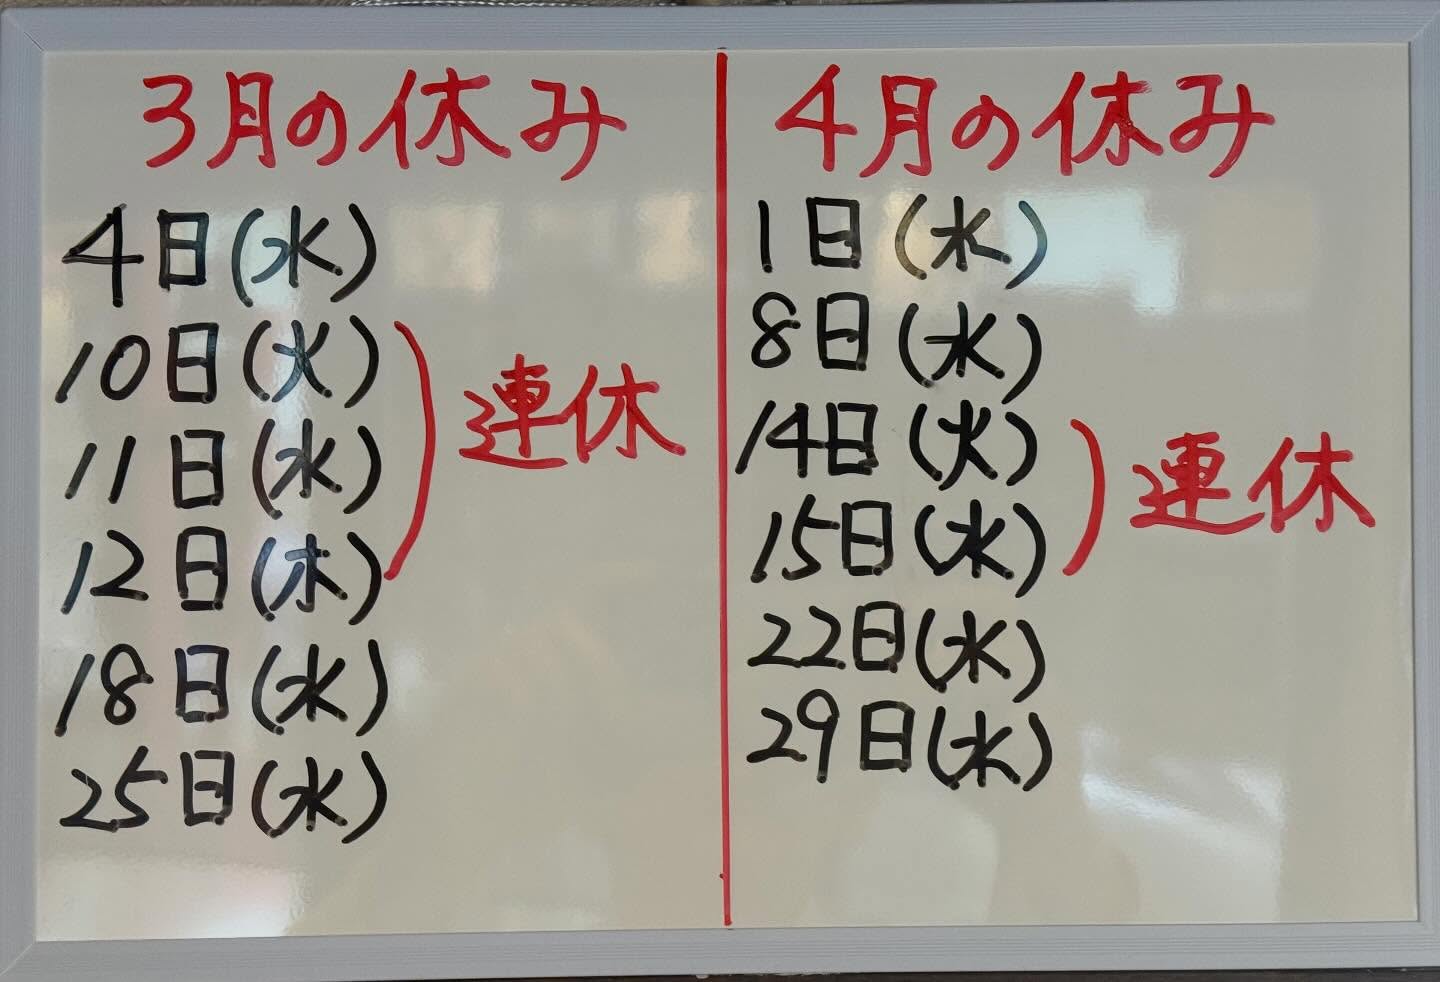 3月の休み
4日(水)
10日(火)
11日(水)
12日(木)
連休
18日(水)
25日(水)
4月の休み
1日(水)
8日(水)
14日(火)
15日(水)
連休
22日(水)
29日(水)